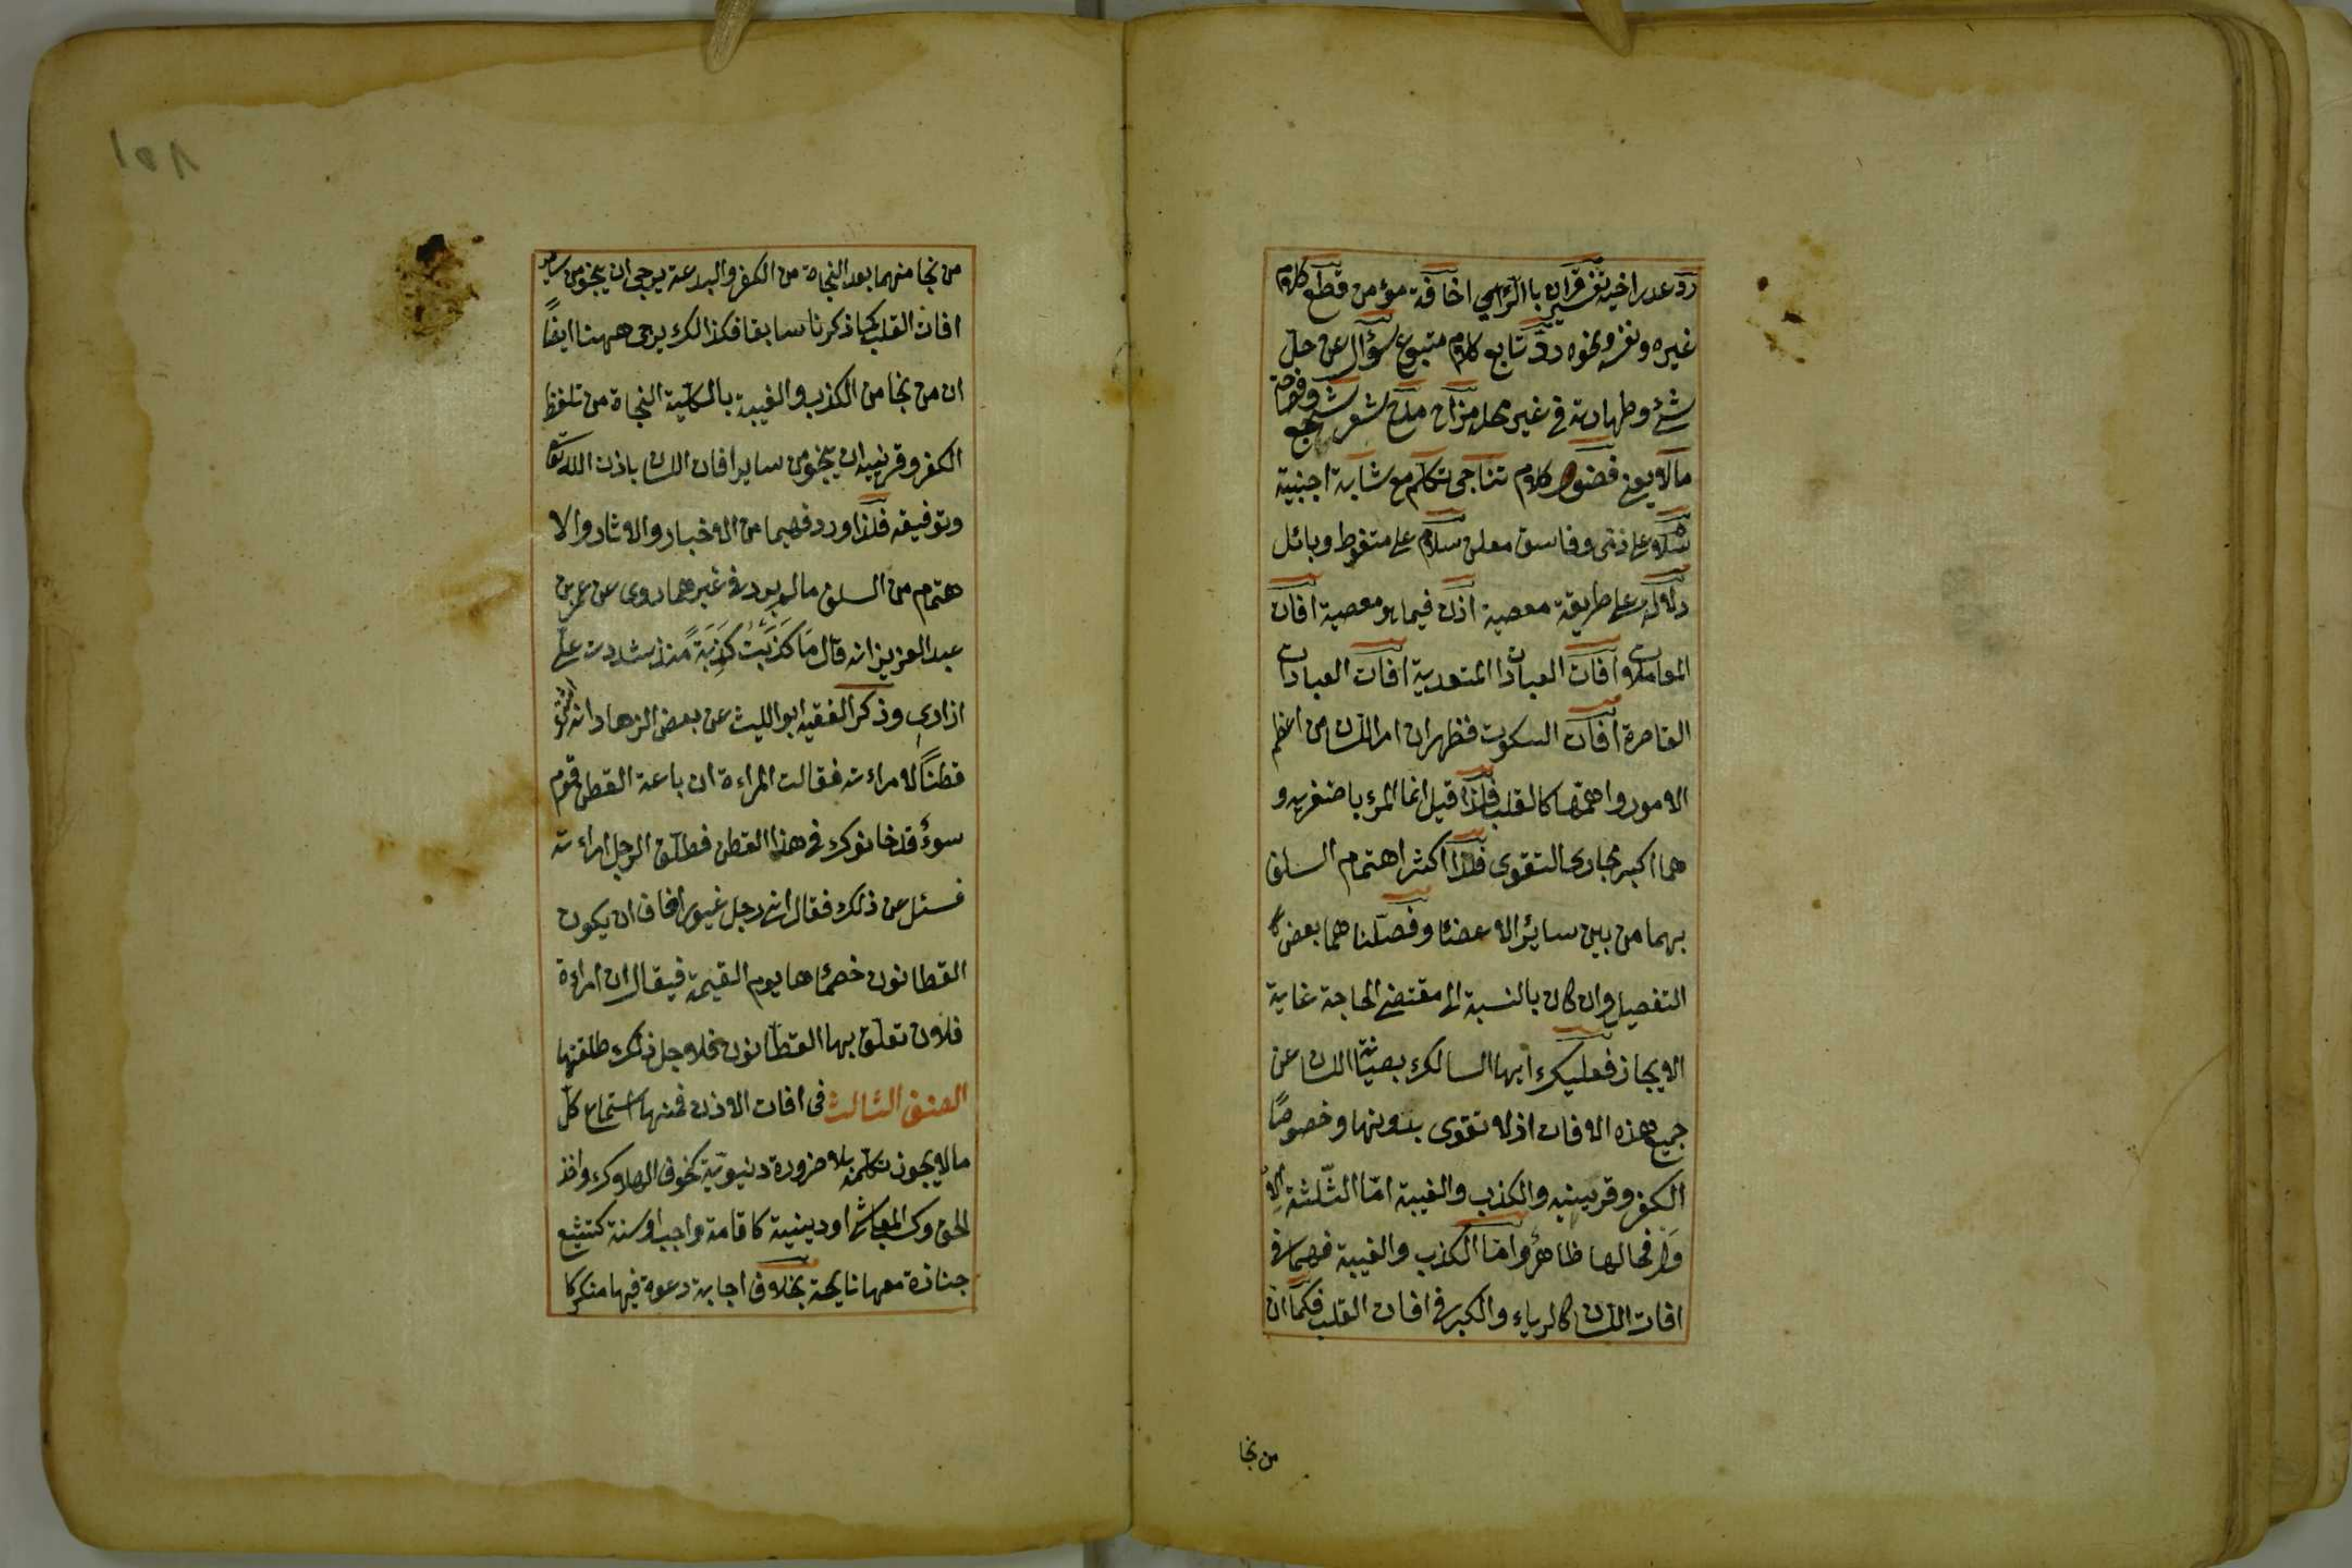 رد عذر اخيه تفسير قران باالرأى اخافة مؤمن قطع كلام
غيره ونفسه ونحوه رد تابع كلام متبوع سؤال عن حل
شئ وطهارته فى غير محله مزاح مدح شعر سجع وفصاحة
مالايعنى فضول كلام تناجى تكلم مع شابة اجنبية
سلام على ذمى وفاسق معلن سلام على متغوط وبائل
دلالة على طريقة معصية اذن فيما هو معصية افات
المعاملات وافات العبادات المتعدية افات العبادات
القاصرة افات السكوت فظهر ان امر اللسان من اعظم
الامور واهمها كالقلب فلذا قيل انما المرء باصغريه و
هما اكبر مجارى التقوى فلذا اكثر اهتمام السلف
بهما من بين سائر الاعضاء وفصلناهما بعض
التفصيل وان كان بالنسبة الى مقتضى الحاجة غاية
الايجاز فعليك ايها السالك بصيانة اللسان عن
جميع هذه الافات اذ لا تقوى بدونها وخصوصًا
الكفر وقرينيه والكذب والغيبة امّا الثلثة الاُ
وَلُ فحالها ظاهرٌ وامّا الكذب والغيبة فهما فى
افات اللسان كالرياء والكبر فى افات القلب فكما ان
من نجا
١٥٨
من نجا منهما بعد النجاة من الكفر والبدعة يرجى ان ينجو من ساير
افات القلب كما ذكرنا سابقا فكذالك يرجى ههنا ايضًا
ان من نجا من الكذب والغيبة بالكلية النجاة من تلفظ
الكفر وقرينيه ان ينجو من ساير افات اللسان باذن الله تعالى
وتوفيقه فلذا ورد فيهما من الاخبار والاثار والا
هتمام من السلف مالم يرد فى غيرهما روى عن عمر بن
عبد العزيز انه قال مَا كَذَبْتُ كَذِبَةً منذ شددت علىّ
ازارى وذكر الفقيه ابو الليث عن بعض الزهاد انه اشترى
قطناً لامراءته فقالت المراءة ان باعة القطن قوم
سوءٌ قد خانوك فى هذا القطن فطلّق الرجل امراءته
فسئل عن ذلك فقال انى رجل غيور اخاف ان يكون
القطانون خصماءها يوم القيمة فيقال ان امراءة
فلان تعلّق بها القطّانون فلاجل ذلك طلقتها
الصنف الثالث فى افات الاذن فمنها استماع كلّ
مالايجوز تكلّمه بلا ضرورة دنيويّة كخوف الهلاك واخذ
الحق وكسب المعاش او دينية كاقامة واجب او سنة كتشيع
جنازة معها نايحة بخلاف اجابة دعوة فيها منكر كا